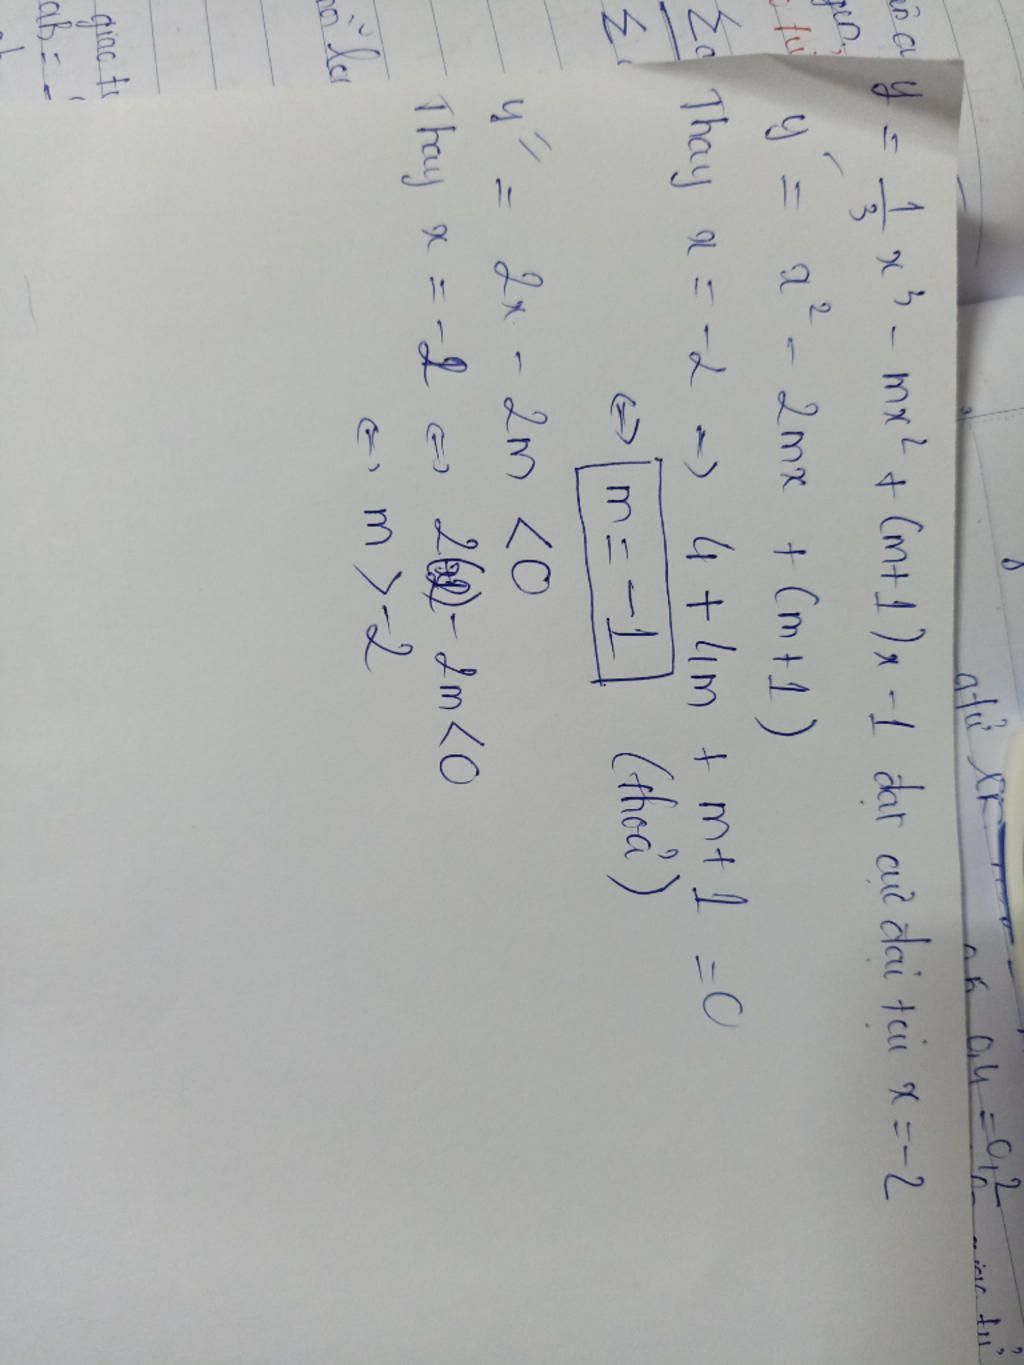 y = 1/3 x³ - mx² + (m+1)x - 1 đạt cực đại tại x = -2
y' = x² - 2mx + (m+1)
Thay x = -2 => 4 + 4m + m+1 = 0
<=> m = -1 (thoả)
y'' = 2x - 2m < 0
Thay x = -2 <=> 2(-2) - 2m < 0
<=> m > -2
giác tr
ab =
a tử
0,4 = 0,2